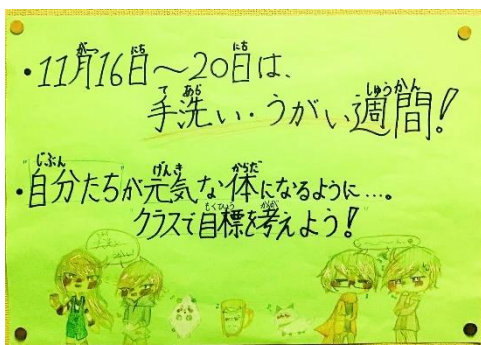 ・11月16日～20日は、
手洗い・うがい週間！
・自分たちが元気な体になるように…。
クラスで目標を考えよう！